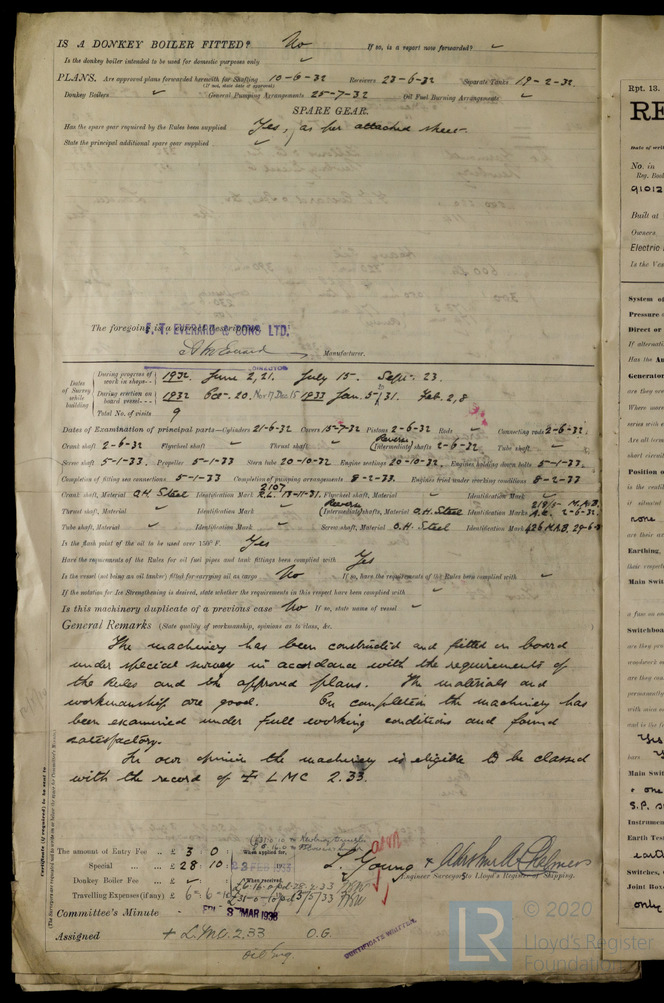 IS A DONKEY BOILER FITTED? No If so, is a report now forwarded? ✓
Is the donkey boiler intended to be used for domestic purposes only ✓
PLANS. Are approved plans forwarded herewith for Shafting 10-6-32 Receivers 23-6-32 Separate Tanks 19-2-32.
(If not, state date of approval)
Donkey Boilers ✓ General Pumping Arrangements 25-7-32 Oil Fuel Burning Arrangements ✓
SPARE GEAR.
Has the spare gear required by the Rules been supplied Yes, as per attached sheet.
State the principal additional spare gear supplied ✓
The foregoing is a correct description,
F. T. EVERARD & SONS LTD.
Manufacturer.
DIRECTOR
Dates of Survey while building
During progress of work in shops-- 1932. June 2, 21. July 15. Sept. 23.
During erection on board vessel--- 1932 Oct. 20. Nov 17 Dec 15 1933 Jan. 5, 31. Feb. 2, 8
Total No. of visits 9
Dates of Examination of principal parts—Cylinders 21-6-32 Covers 15-7-32 Pistons 2-6-32 Rods ✓ Connecting rods 2-6-32.
Crank shaft 2-6-32 Flywheel shaft ✓ Thrust shaft ✓ Reverse Intermediate shafts 2-6-32 Tube shaft ✓
Screw shaft 5-1-33. Propeller 5-1-33 Stern tube 20-10-32 Engine seatings 20-10-32. Engines holding down bolts 5-1-33.
Completion of fitting sea connections 5-1-33 Completion of pumping arrangements 8-2-33. Engines tried under working conditions 8-2-33
Crank shaft, Material O.H. Steel Identification Mark 2107 R.L. 13-11-31. Flywheel shaft, Material ✓ Identification Mark ✓
Thrust shaft, Material ✓ Identification Mark ✓ Reverse Intermediate shafts, Material O.H. Steel Identification Marks A.R. 2-6-32.
Tube shaft, Material ✓ Identification Mark ✓ Screw shaft, Material O.H. Steel Identification Mark 626 M.A.B.
Is the flash point of the oil to be used over 150° F. Yes
Have the requirements of the Rules for oil fuel pipes and tank fittings been complied with Yes
Is the vessel (not being an oil tanker) fitted for carrying oil as cargo No If so, have the requirements of the Rules been complied with ✓
If the notation for Ice Strengthening is desired, state whether the requirements in this respect have been complied with ✓
Is this machinery duplicate of a previous case No If so, state name of vessel ✓
General Remarks (State quality of workmanship, opinions as to class, &c.
The machinery has been constructed and fitted on board
under special survey in acordance with the requirements of
the Rules and the approved plans. The materials and
workmanship are good. On completion the machinery has
been examined under full working conditions and found
satisfactory.
In our opinion the machinery is eligible to be classed
with the record of + LMC 2.33.
The amount of Entry Fee .. £ 3 : 0 :
When applied for,
Special ... .. £ 28 : 10 :
Donkey Boiler Fee ... £ ✓
When received,
Travelling Expenses (if any) £ 6 : 6 - 10
L. Young +
Engineer Surveyors to Lloyd's Register of Shipping.
Committee's Minute FRI. 3 MAR 1933
Assigned + L.M.C. 2.33 O.G.
Oil Eng
CERTIFICATE WRITTEN.
Certificate (if required) to be sent to
(The Surveyors are requested not to write on or below the space for Committee's Minute.)
Rpt. 13.
RE
No. in
Reg. Book
91012
Built at
Owners
Electric
Is the Ves
System of
Pressure o
Direct or
If alternati
Has the Au
Generator
Position o
none
Earthing,
Main Swit
Switchboa
Yes
Main Swit
S.P. s
Instrumen
Earth Test
earth
Switches, C
only
© 2020
Lloyd's Register
Foundation
LR